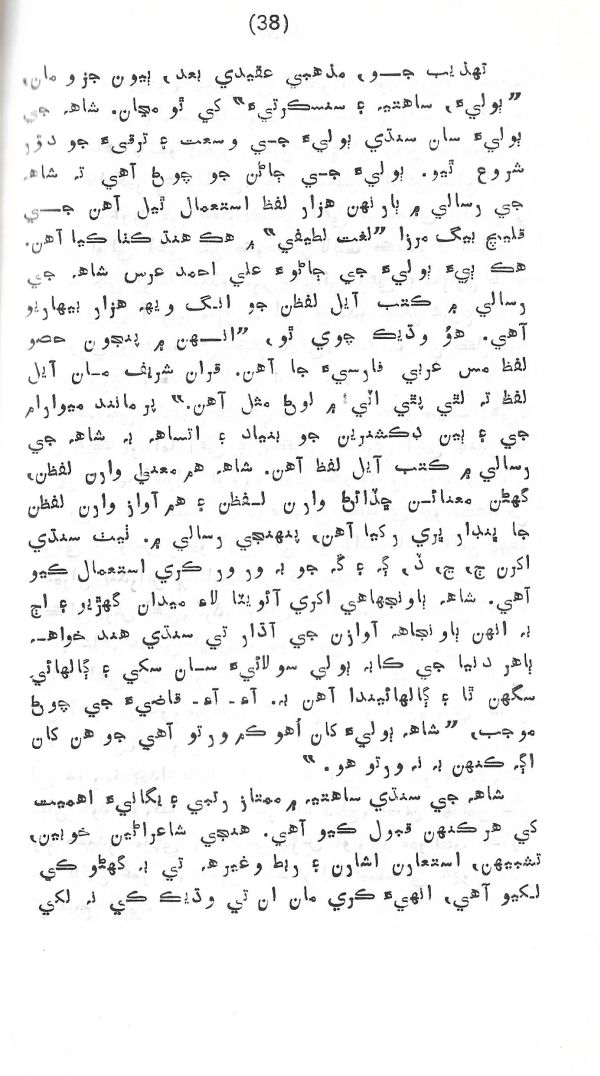 (38)
تهذيب جــو، مذهبي عقيدي بعد، ٻيون جزو مان،
”ٻوليءَ، ساهتيہ ۽ سنسڪرتيءَ“ کي ٿو مڃان. شاھہ جي
ٻوليءَ سان سنڌي ٻوليءَ جـي وسعت ۽ ترقيءَ جو دؤر
شروع ٿيو. ٻوليءَ جـي ڄاڻن جو چوڻ آهي تہ شاھہ
جي رسالي ۾ ٻارنهن هزار لفظ استعمال ٿيل آهن جــي
قليچ بيگ مرزا ”لغت لطيفي“ ۾ هڪ هنڌ ڪٺا ڪيا آهن.
هڪ ٻيءَ ٻوليءَ جي ڄاڻوءَ علي احمد عرس شاھہ جي
رسالي ۾ ڪتب آيل لفظن جو انگ ويھہ هزار بيهاريو
آهي. هؤ وڌيڪ چوي ٿو، ”انــهن ۾ پنجون حصو
لفظ مس عربي فارسيءَ جا آهن. قران شريف مـان آيل
لفظ تہ لٿي پٿي اٽيءَ ۾ لوڻ مثل آهن.“ پرمانند ميوارام
جي ۽ ٻين ڊڪشنرين جو بنياد ۽ اتساھہ بہ شاھہ جي
رسالي ۾ ڪتب آيل لفظ آهن. شاھہ هم معنيٰ وارن لفظن،
گهڻن معنائـن ڇڏائڻ وارن لـفظن ۽ هم آواز وارن لفظن
جا ڀنڊار ڀري رکيا آهن، پنهنجي رسالي ۾. ٺيٺ سنڌي
اکرن ڄ، ڃ، ڏ، ڳ، ۽ ڱ، جو بہ ور ور ڪري استعمال ڪيو
آهي. شاھہ ٻاونجهاهي اکري آئويٽا لاءِ ميدان گهڙيو ۽ اڄ
بہ انهن ٻاونجاھہ آوازن جي آڌار تي سنڌي هند خواھـہ
ٻاهر دنيا جي ڪابہ ٻولي سولائيءَ سـان سکي ۽ ڳالهائي
سگهن ٿا ۽ ڳالهائيندا آهن بہ. آءِ۔ آءِ۔ قاضيءَ جي چوڻ
موجب، ”شاھہ ٻوليءَ کان اُهو ڪم ورتو آهي جو هن کان
اڳہ ڪنهن بہ نہ ورتو هو. “
شاھہ جي سنڌي ساهتيہ ۾ ممتاز رتبي ۽ يگانيءَ اهميت
کي هرڪنهن قبول ڪيو آهي. هنجي شاعراڻين خوبين،
تشبيهن، استعارن اشارن ۽ ربط وغيرھہ تي بہ گهڻو ڪي
لـکيو آهي، انهيءَ ڪري مان ان تي وڌيڪ ڪي نہ لکي